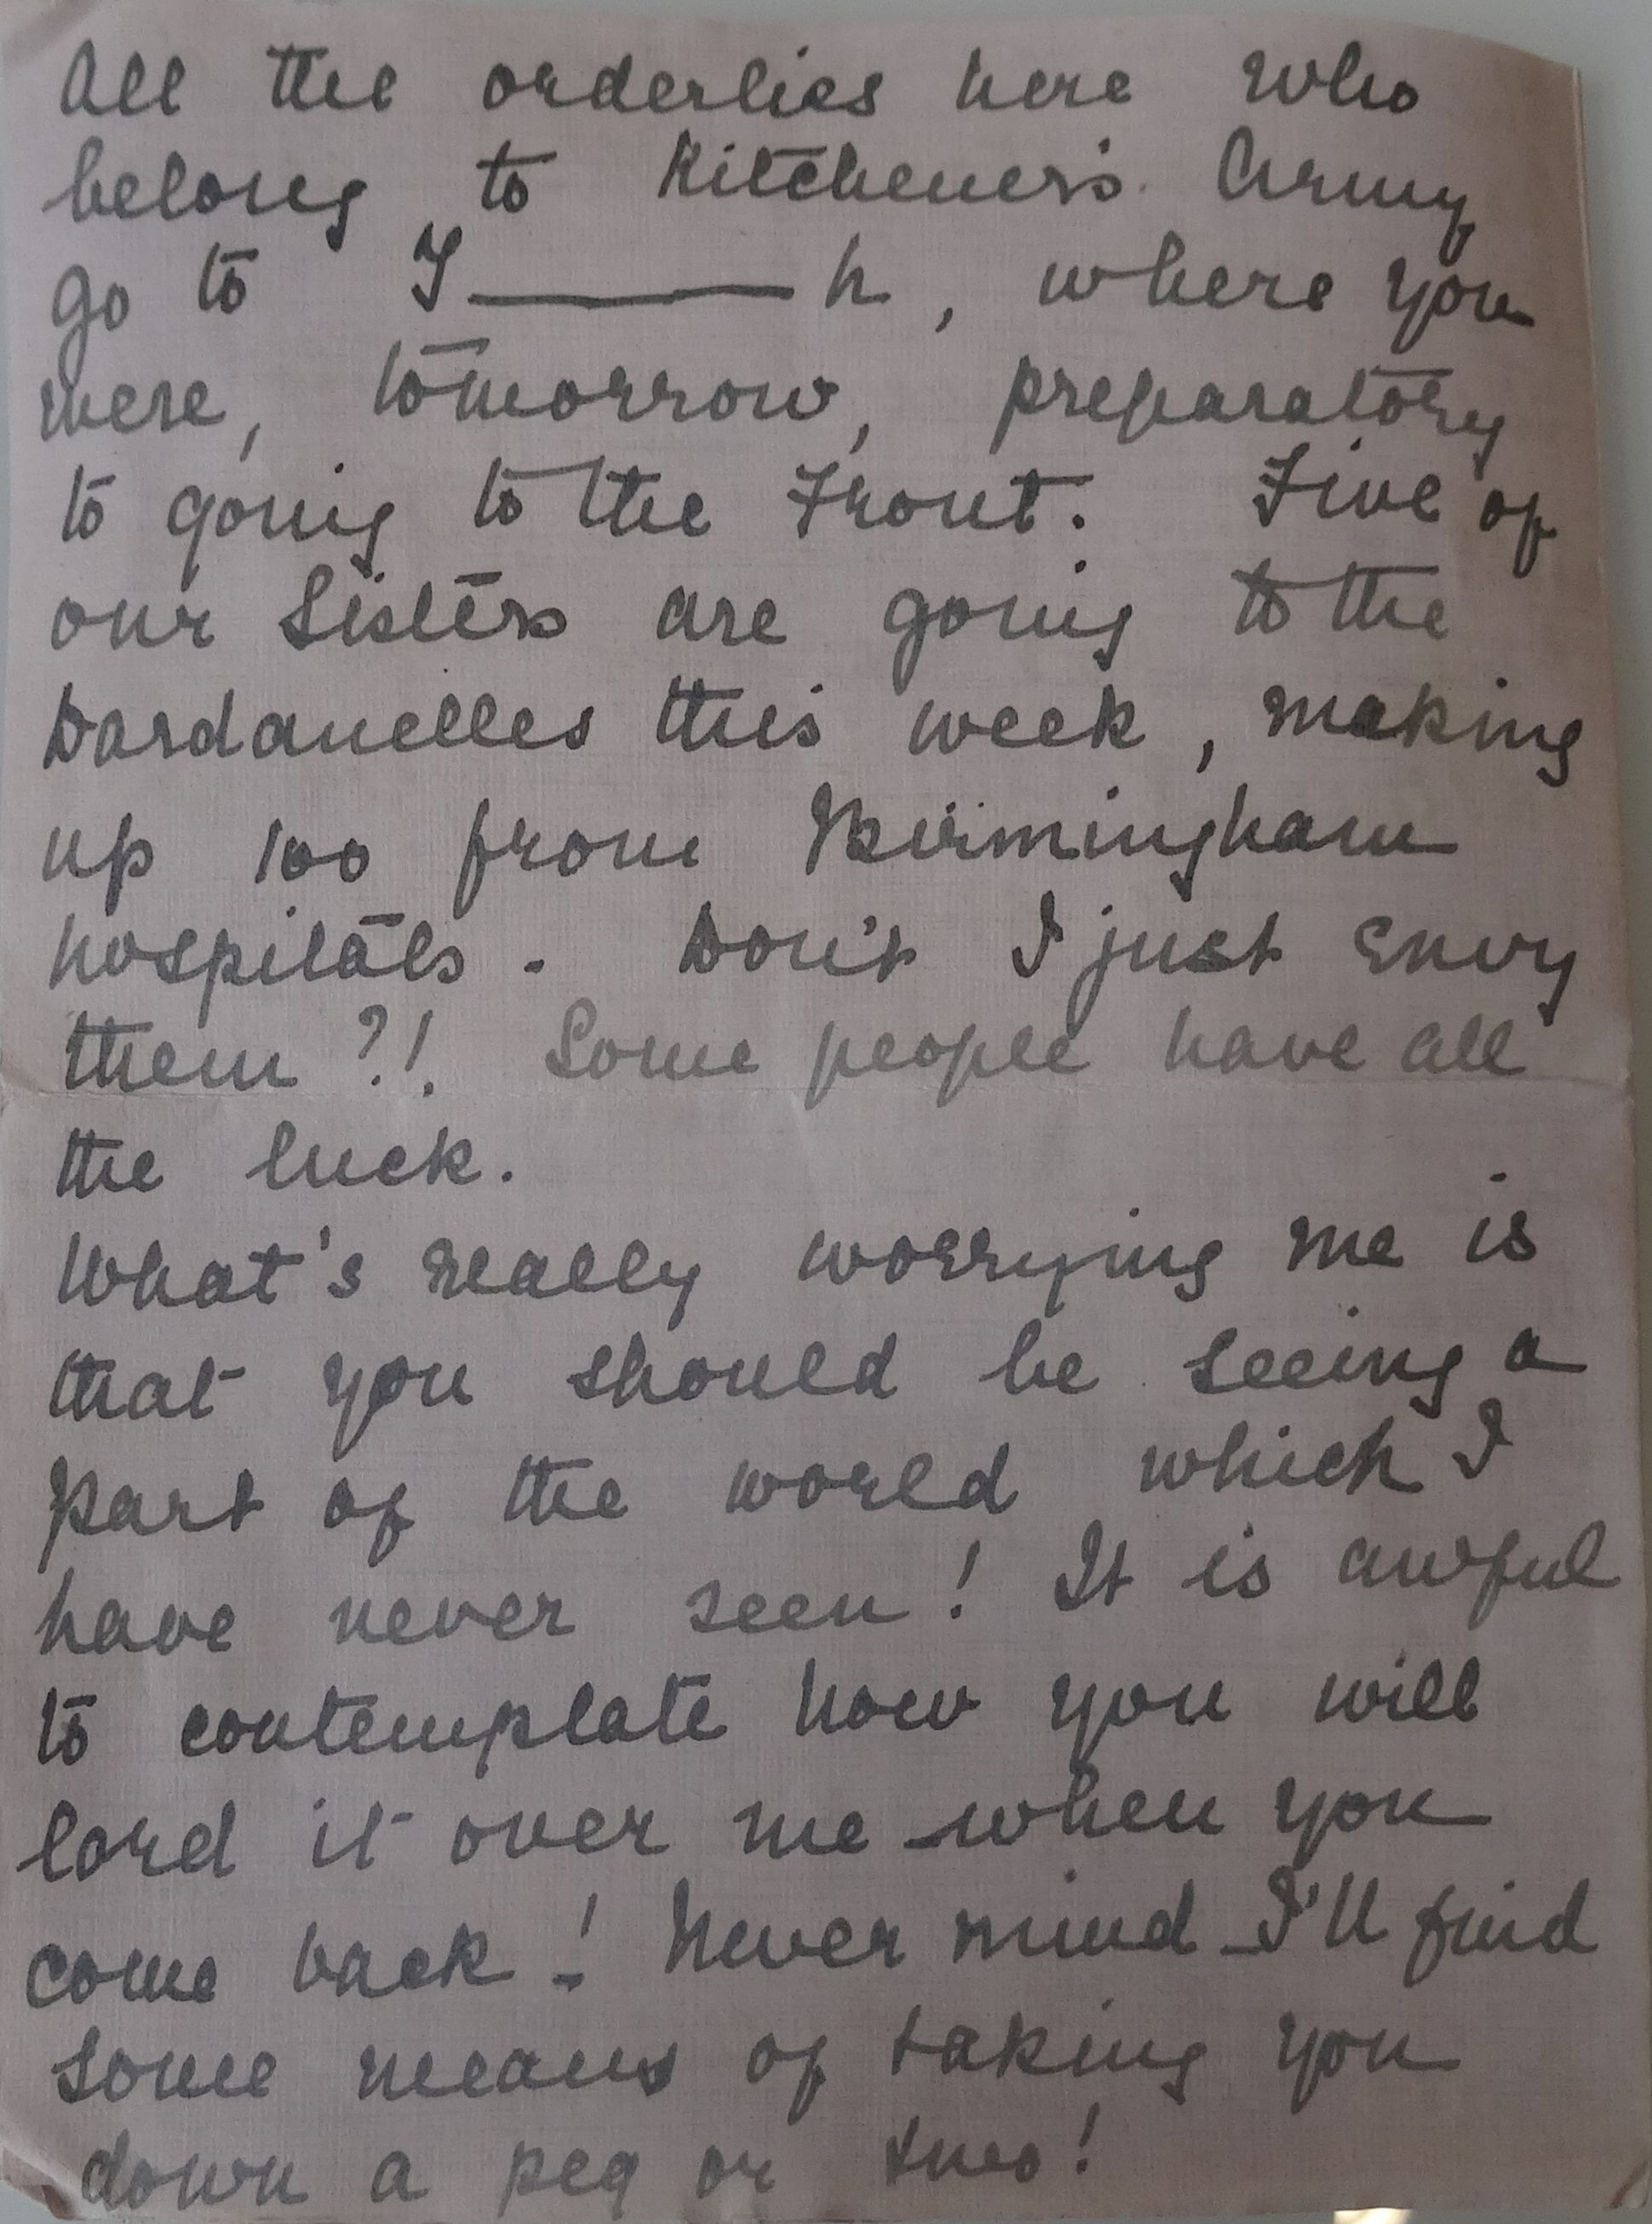 All the orderlies here who
belong to Kitchener's Army
go to Y———h, where you
were, tomorrow, preparatory
to going to the Front. Five of
our Sisters are going to the
Dardanelles this week, making
up 100 from Birmingham
hospitals. Don't I just envy
them?! Some people have all
the luck.
What's really worrying me is
that you should be seeing a
part of the world which I
have never seen! It is awful
to contemplate how you will
lord it over me when you
come back! Never mind I'll find
some means of taking you
down a peg or two!